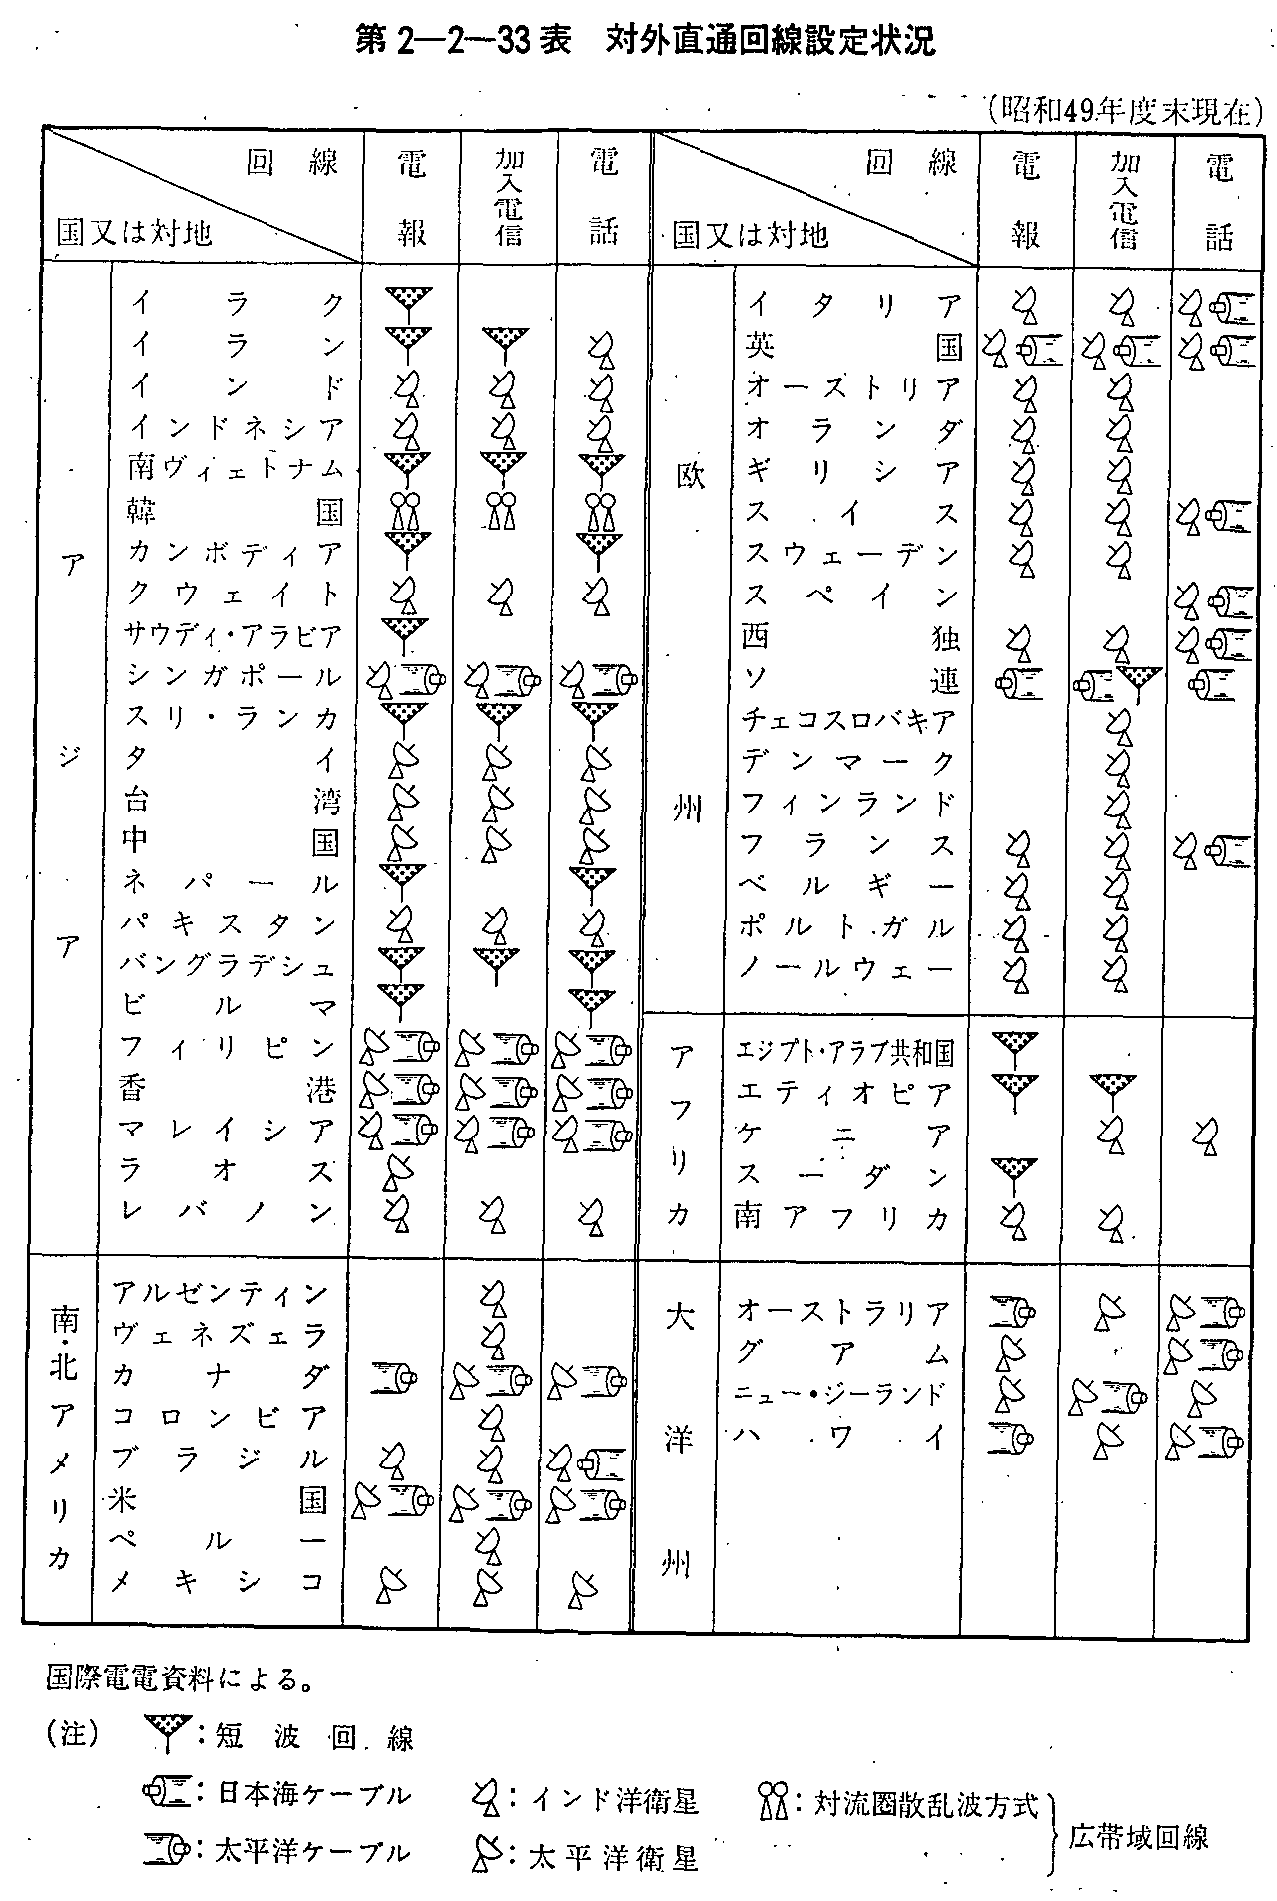 第2―2―33表 対外直通回線設定状況
(昭和49年度末現在)
回線
国又は対地
電報
加入電信
電話
回線
国又は対地
電報
加入電信
電話
アジア
イラク
イラン
インド
インドネシア
南ヴィェトナム
韓国
カンボディア
クウェイト
サウディ・アラビア
シンガポール
スリ・ランカ
タイ
台湾
中国
ネパール
パキスタン
バングラデシュ
ビルマ
フィリピン
香港
マレイシア
ラオス
レバノン
南・北アメリカ
アルゼンティン
ヴェネズェラ
カナダ
コロンビア
ブラジル
米国
ペルー
メキシコ
欧州
イタリア
英国
オーストリア
オランダ
ギリシア
スイス
スウェーデン
スペイン
西独
ソ連
チェコスロバキア
デンマーク
フィンランド
フランス
ベルギー
ポルトガル
ノールウェー
アフリカ
エジプト・アラブ共和国
エティオピア
ケニア
スーダン
南アフリカ
大洋州
オーストラリア
グアム
ニュー・ジーランド
ハワイ
国際電電資料による。
(注) :短波回線
:日本海ケーブル :インド洋衛星 :対流圏散乱波方式
:太平洋ケーブル :太平洋衛星
広帯域回線